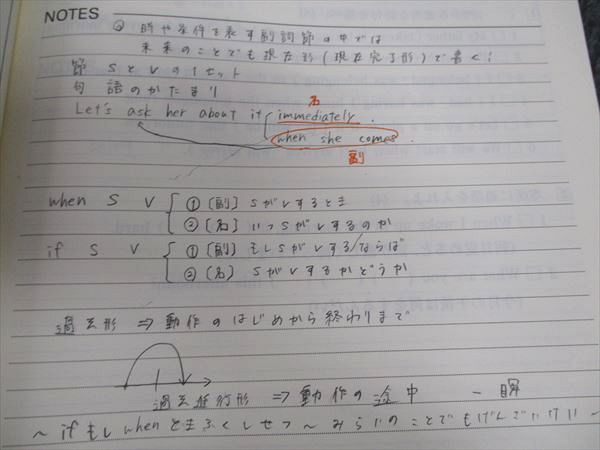 NOTES
◎ 時や条件を表す副詞節の中では
未来のことでも現在形(現在完了形)で書く!
節 SとVの1セット
句 語のかたまり
名
Let's ask her about it { immediately.
when she comes.
副
when S V { ① [副] SがVするとき
② [名] いつSがVするのか
if S V { ① [副] もしSがVする/ならば
② [名] SがVするかどうか
過去形 ⇒ 動作のはじめから終わりまで
過去進行形 ⇒ 動作の途中 一瞬
~ if もし when ときふくしせつ ~ みらいのことでもげんざいけい ~